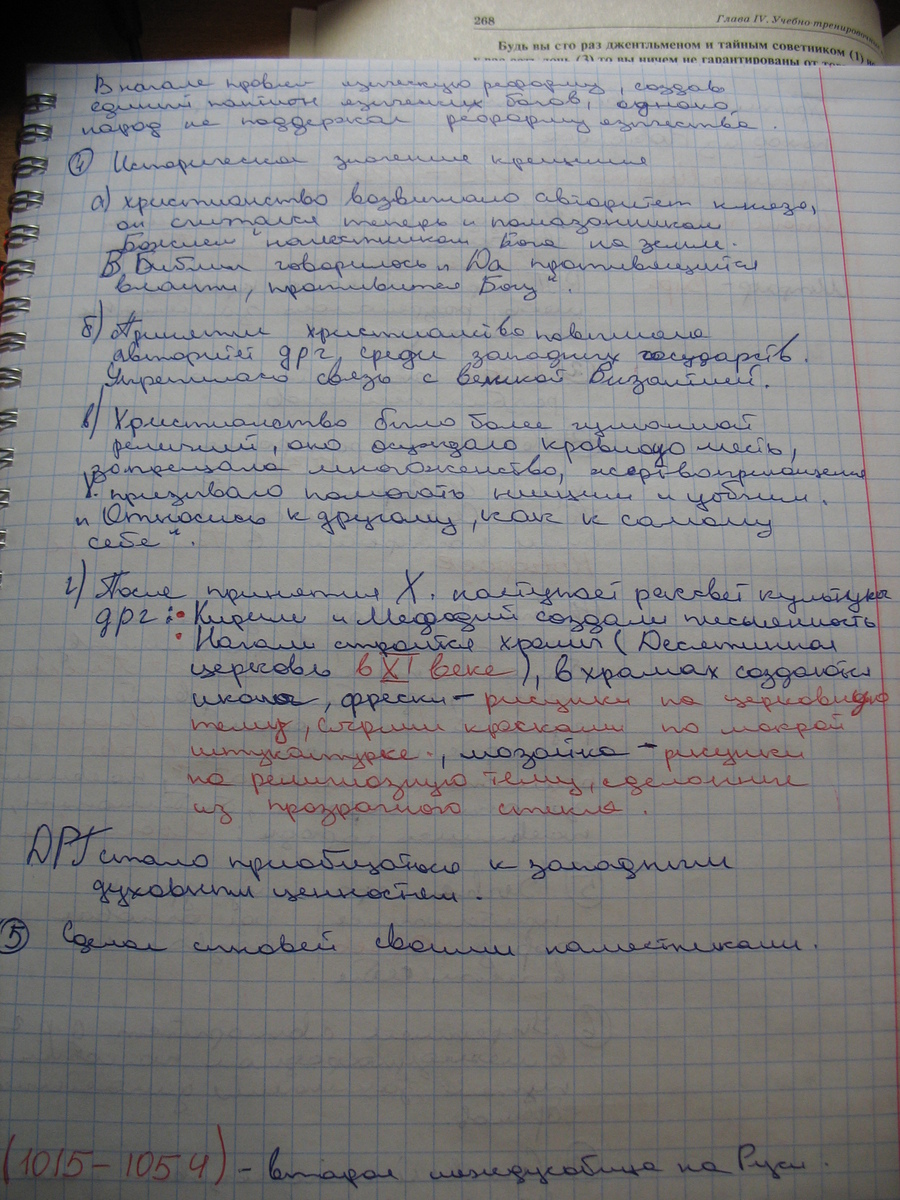 268
Глава IV. Учебно-тренировочные
Будь вы сто раз джентльменом и тайным советником (1) н
(3) то вы ничем не гарантированы от
В начале провёл языческую реформу, создав
единый пантион языческих богов, однако,
народ не поддержал реформу язычества.
4 Историческое значение крещения
а) христианство возвышало авторитет князя,
он считался теперь и помазанником
Божием "наместником Бога на земле.
В Библии говорилось "Да противящийся
власти, противится Богу".
б) Принятие христианство повышало
авторитет ДРГ среди западных государств.
Укреплило связь с великой Византией.
в) Христианство было более гуманной
религией, оно осуждало кровную месть,
запрещало многоженство, жертвоприношения
Х. призывало помогать нищим и убогим.
"Относись к другому, как к самому
себе".
г) После принятия Х. наступает рассвет культуры
ДРГ: • Кирилл и Мефодий создали письменность
• Начали строится храмы (Десятинная
церковь в XI веке), в храмах создаются
иконы, фрески - рисунки на церковную
тему, сырыми красками по мокрой
штукатурке., мозайка - рисунки
на религиозную тему, сделанные
из прозрачного стекла.
ДРГ стало приобщаться к западным
духовным ценностям.
5 Сделал сыновей своими наместниками.
(1015-1054) - вторая междусобица на Руси.